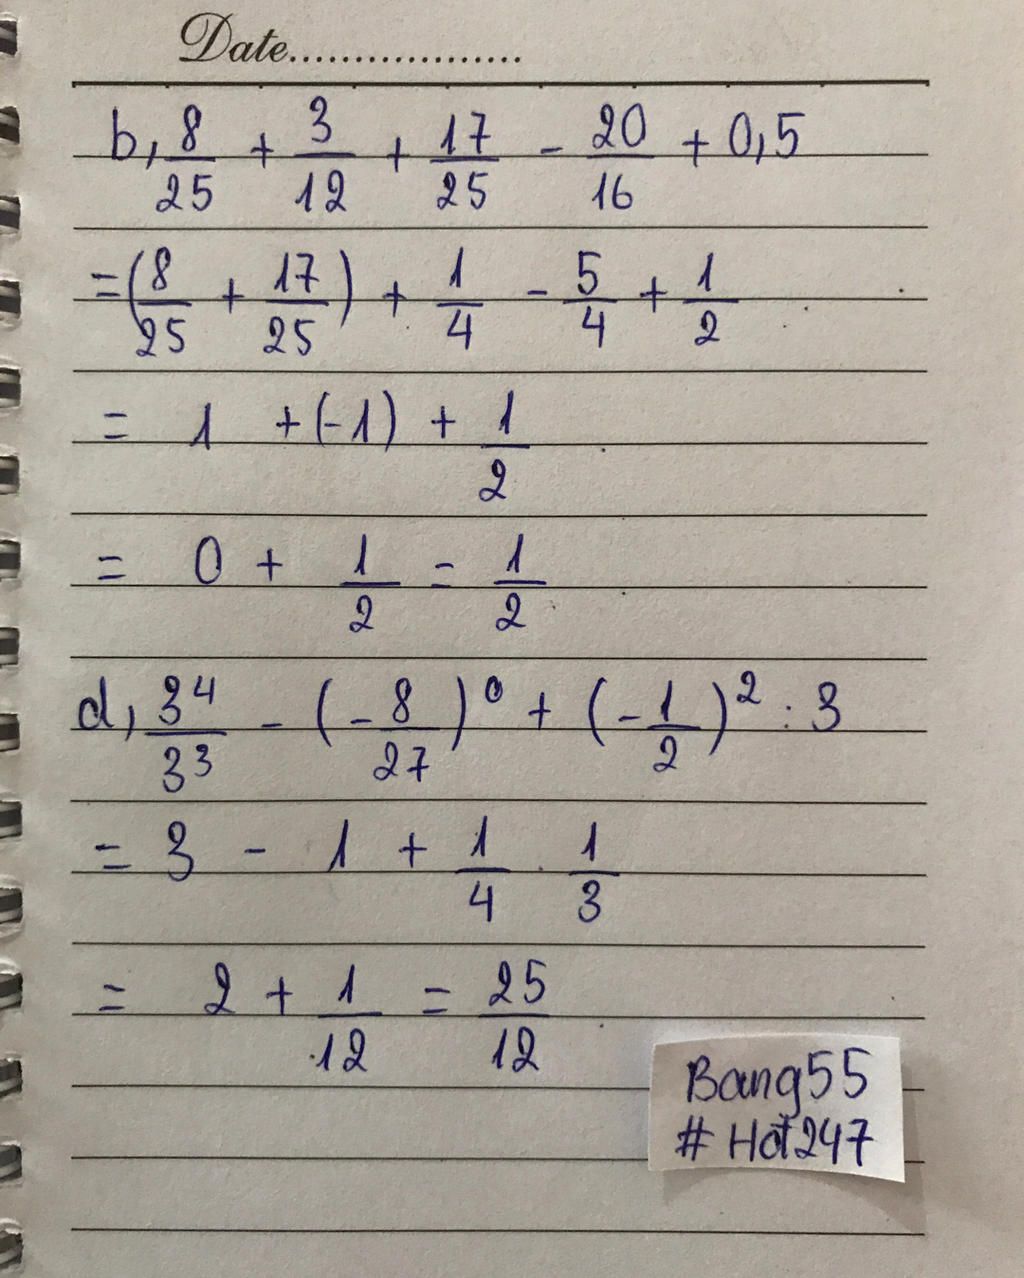 Date..................
b, 8/25 + 3/12 + 17/25 - 20/16 + 0,5
= (8/25 + 17/25) + 1/4 - 5/4 + 1/2
= 1 + (-1) + 1/2
= 0 + 1/2 = 1/2
d, 3⁴/3³ - (-8/27)⁰ + (-1/2)² : 3
= 3 - 1 + 1/4 . 1/3
= 2 + 1/12 = 25/12
Bang55
# Hot247